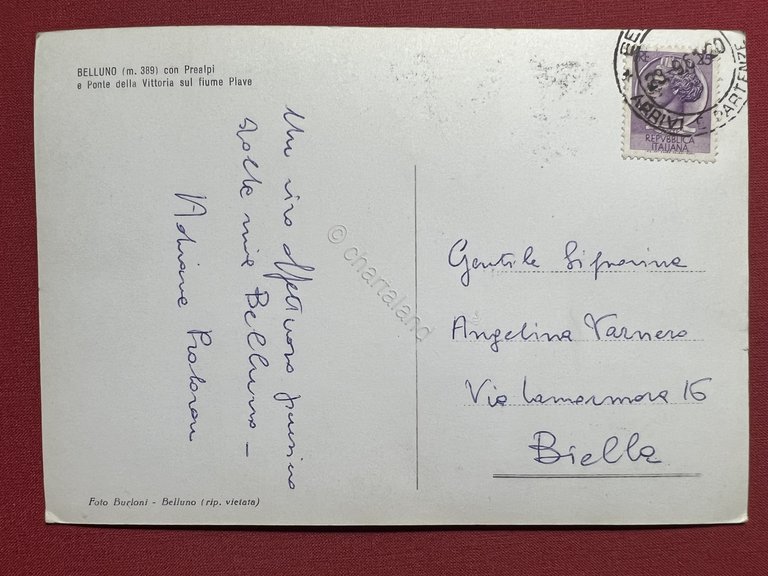 BELLUNO (m. 389) con Prealpi
e Ponte della Vittoria sul fiume Piave
Un vivo affettuoso pensiero
dalla mia Belluno -
Adriana
Foto Burloni - Belluno (rip. vietata)
ARRIVI E PARTENZE
25
REPVBBLICA
ITALIANA
Gentile Signorina
Angelina Varnero
Via Lamarmora 16
Biella
© chartaland